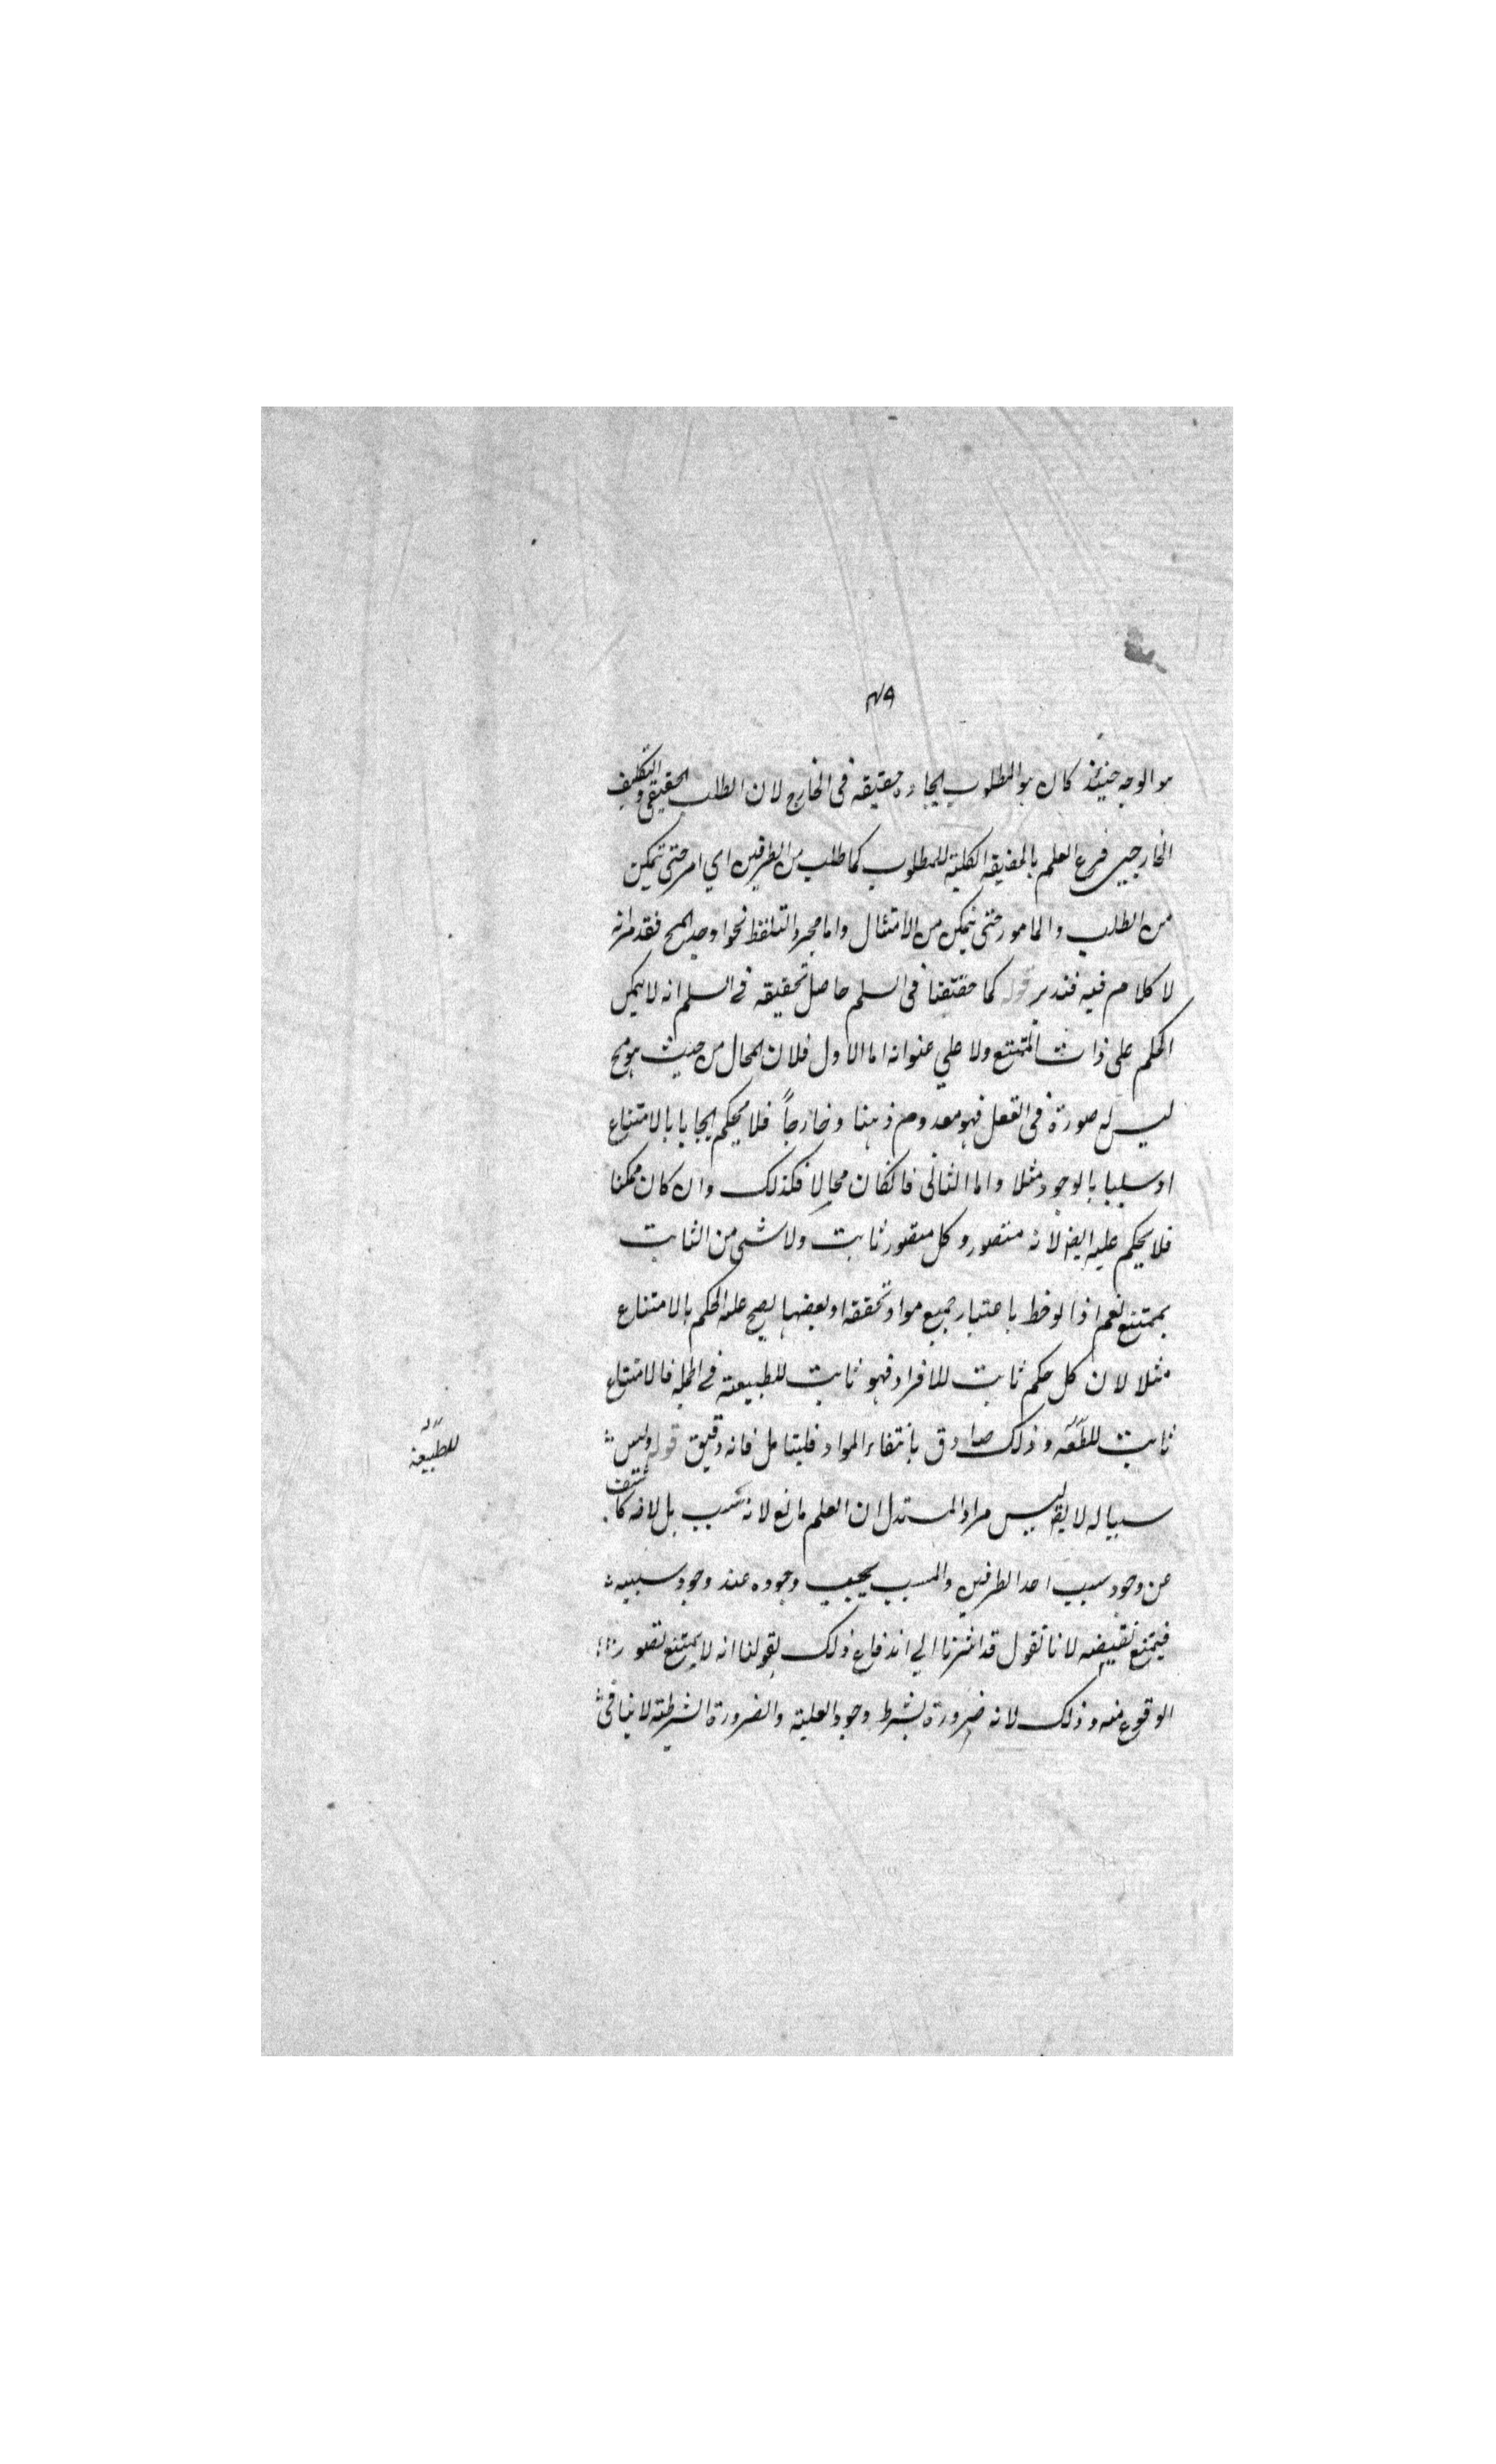 ٧٩
هو الوجه حينئذ كان هو المطلوب ايجاده حقيقه فى الخارج لان الطلب الحقيقى والتكليف
الخارجى فرع العلم بالحقيقه الكلية للمطلوب كما طلب من الطرفين اي امر حتى تمكن
من الطلب والمامور حتى يتمكن من الامتثال واما مجرد التلفظ نحو اوجد المح فقد مر انه
لا كلام فيه فتدبر قوله كما حققنا فى السلم حاصل تحقيقه فى السلم انه لا يمكن
الحكم على ذات الممتنع ولا علي عنوانه اما الاول فلان المحال من حيث هو مح
ليس له صورة فى العقل فهو معدوم ذهنا وخارجاً فلا يحكم ايجابا بالامتناع
او سلبا بالوجود مثلا واما الثانى فان كان محالا فكذلك وان كان ممكنا
فلا يحكم عليه ايضا لانه متصور وكل متصور ثابت ولا شى من الثابت
بممتنع نعم اذا لوحظ باعتبار جميع مواد تحققه او بعضها يصح عليه الحكم بالامتناع
مثلا لان كل حكم ثابت للافراد فهو ثابت للطبيعة فى الجمله فالامتناع
ثابت للطبعه وذلك صادق بانتفاء المواد فليتامل فانه دقيق قوله وليس
للطبيعة
سببا له لا يقه ليس مراد المستدل ان العلم مانع لانه سبب بل لانه كاشف
عن وجود سبب احد الطرفين والمسبب يجب وجوده عند وجود سببه
فيمتنع نقيضه لانا نقول قد اشرنا الي اندفاع ذلك بقولنا انه لا يمتنع تصور
الوقوع منه وذلك لانه ضرورة بشرط وجود العلية والضرورة الشرطية لا ينافى